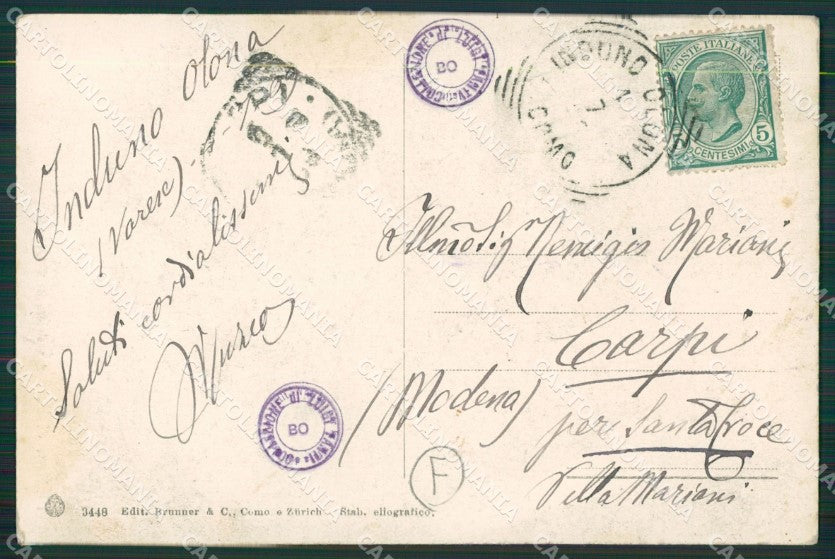 Induno Olona
(Varese)
Saluti cordialissimi
COLLEZIONE DI LUIGI
BO
INDUNO OLONA
COMO
POSTE ITALIANE
5
CENTESIMI
Illmo Sig Remigio Mariani
Carpi
(Modena)
per Santa Croce
Villa Mariani
COLLEZIONE DI LUIGI
BO
F
3448 Edit. Brunner & C., Como e Zürich - Stab. eliografico.
CARTOLINOMANIA